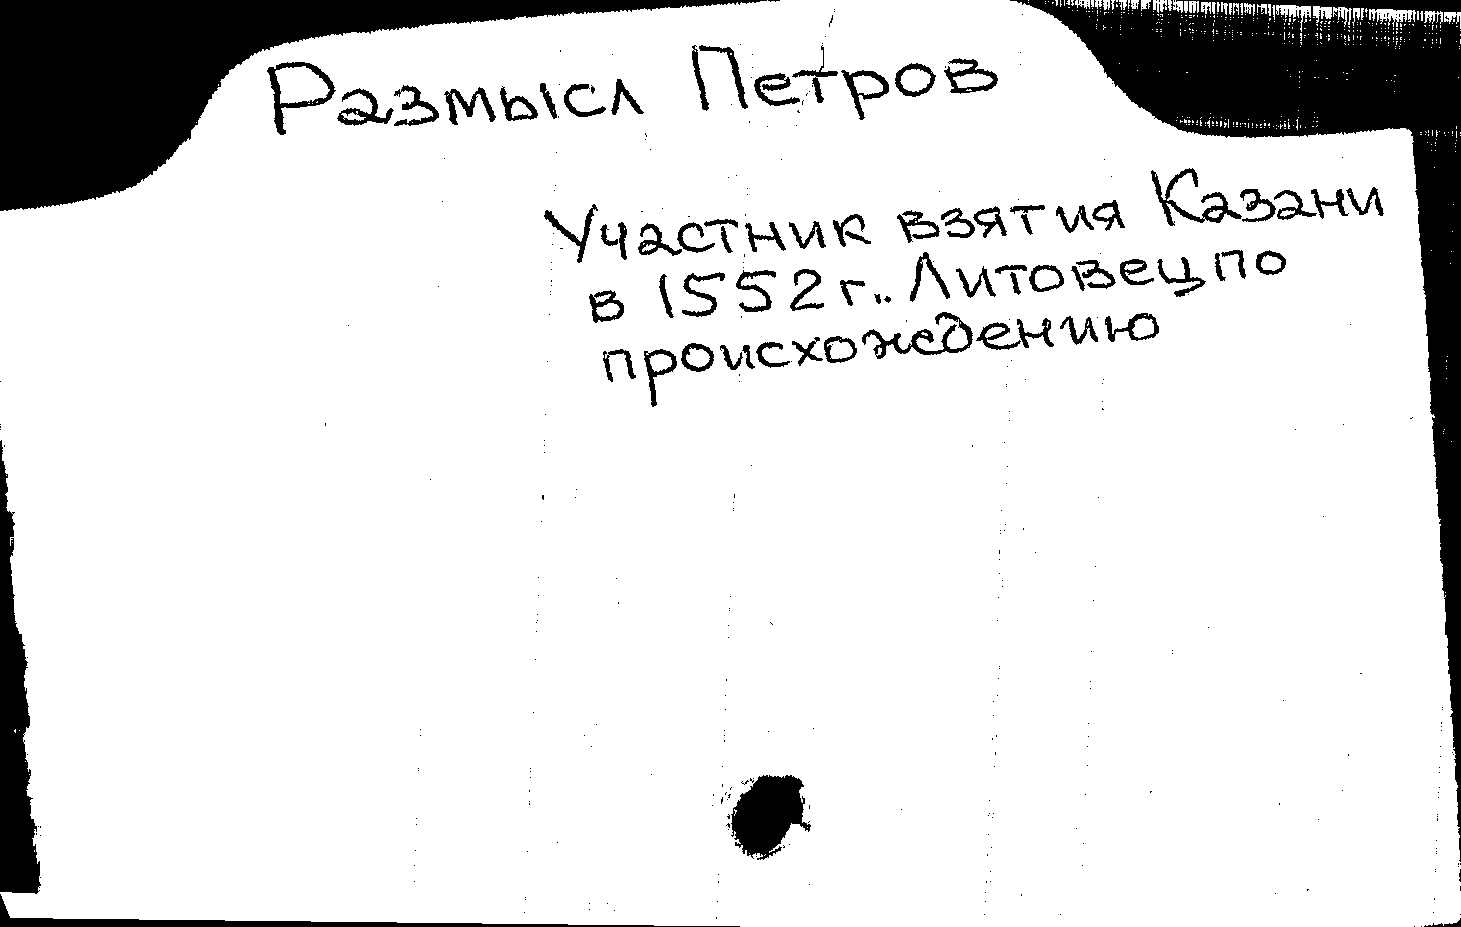 Размысл Петров
Участник взятия Казани
в 1552 г.. Литовец по
происхождению